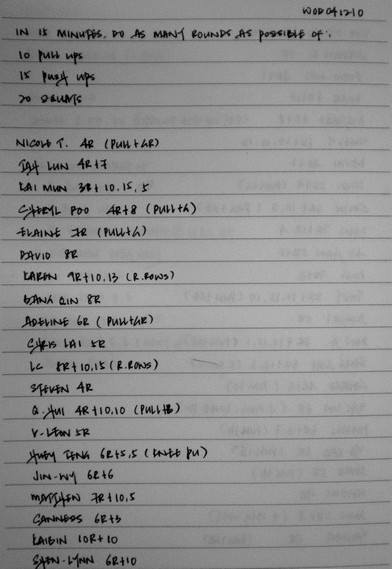 WOD 041210
IN 15 MINUTES, DO AS MANY ROUNDS AS POSSIBLE OF:
10 PULL UPS
15 PUSH UPS
20 SQUATS
NICOLE T. 4R (PULL+GR)
TAH LUN 4R+7
KAI MUN 3R+10,15,5
CHERYL FOO 4R+8 (PULL+G)
ELAINE 7R (PULL+G)
DAVID 8R
KAREN 9R+10,13 (R.ROWS)
GANG QIN 8R
ADELINE 6R (PULL+GR)
CHRIS LAI 5R
LC 8R+10,15 (R.ROWS)
STEVEN 4R
Q. HUI 4R+10,10 (PULL+B)
Y-LEON 5R
HUEY TENG 6R+5,5 (KNEE PU)
JIN-WY 6R+6
MATTHEW 7R+10,5
CANNESS 6R+3
KAIBIN 10R+10
SHEN-LYNN 6R+10